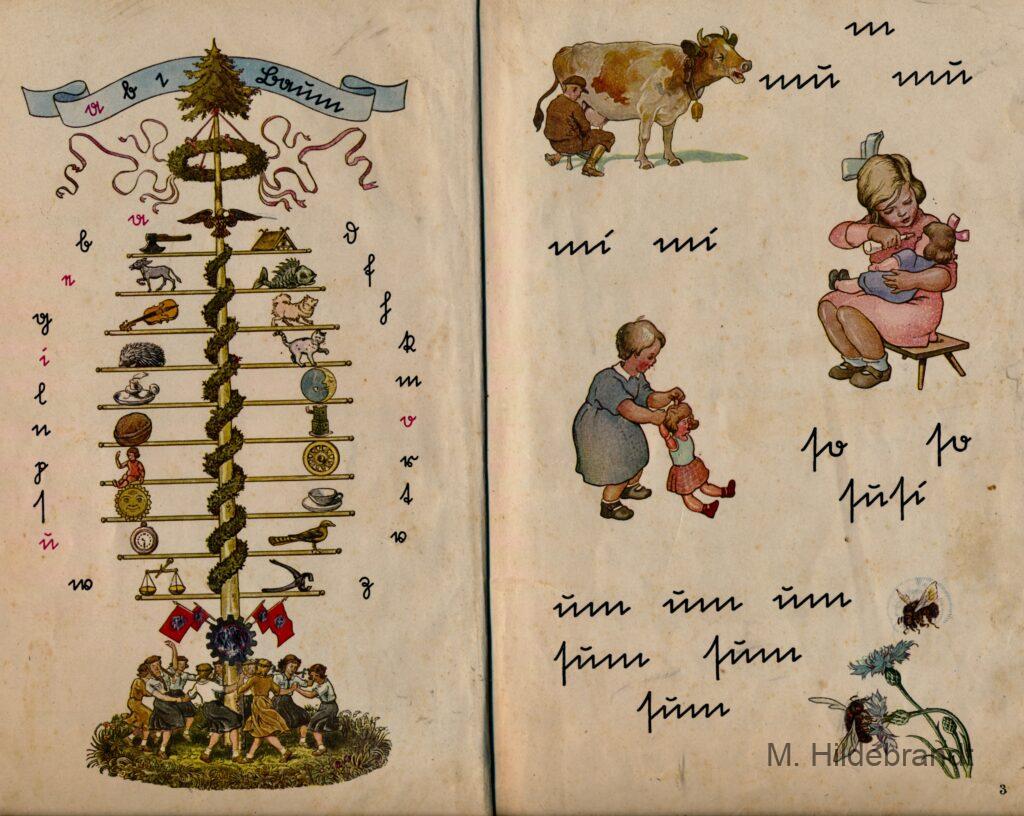 a b c Baum
a
b
e
g
i
l
n
p
s
u
w
d
f
h
k
m
o
r
t
v
z
m
mu mu
mi mi
so so
susi
um um um
sum sum
sum
M. Hildebrandt
3